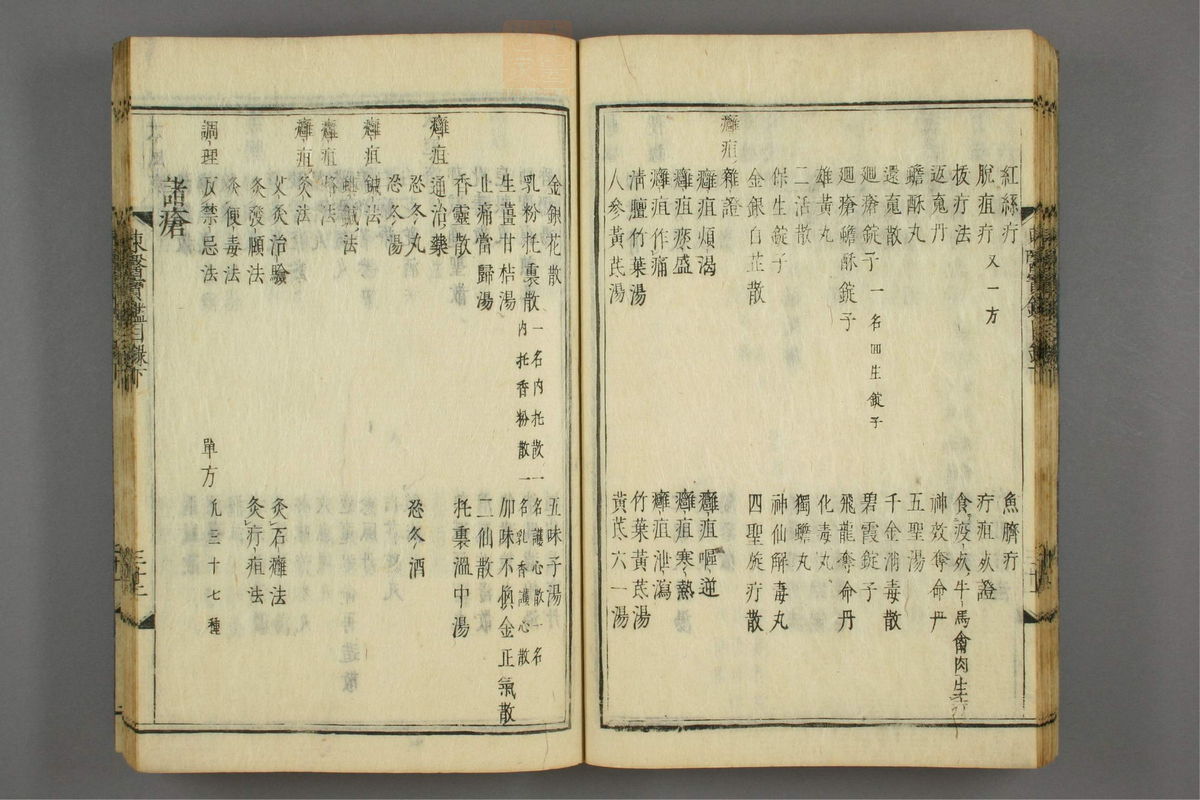 紅絲疔 魚臍疔
脫疽疔 又一方 疔疽灸證
拔疔法 食疫死牛馬禽肉生疔
返䰟丹 神效奪命丹
蟾酥丸 五聖湯
還䰟散 千金消毒散
廻瘡錠子 一名囬生錠子 碧霞錠子
廻瘡蟾酥錠子 飛龍奪命丹
雄黃丸 化毒丸
二活散 獨蟾丸
保生錠子 神仙解毒丸
金銀白芷散 四聖旋疔散
癰疽雜證
癰疽煩渴 癰疽嘔逆
癰疽痰盛 癰疽寒熱
癰疽作痛 癰疽泄瀉
淸膻竹葉湯 竹葉黃芪湯
人參黃芪湯 黃芪六一湯
東醫寶鑑目錄下
金銀花散 五味子湯
乳粉托裏散 一名內托散一名護心散一名內托香粉散一名乳香護心散
生薑甘桔湯 加味不換金正氣散
止痛當歸湯 二仙散
香靈散 托裏溫中湯
癰疽通治藥
忍冬丸
忍冬湯 忍冬酒
癰疽鍼法
蜞鍼法
癰疽烙法
癰疽灸法
艾灸治驗 灸石癰法
灸發頤法 灸疔疽法
灸便毒法
調理及禁忌法 單方 凡三十七種
諸瘡
東醫寶鑑目錄下